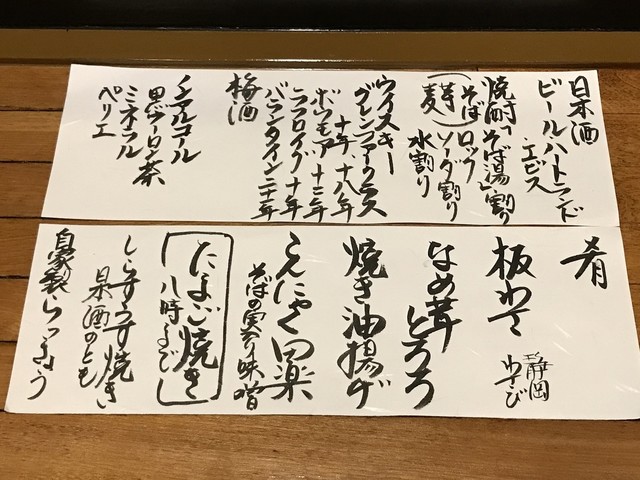 日本酒
ビール ハートランド
・エビス
焼酎 「そば湯」割り
そば ロック
(芋) ソーダ割り
麦 水割り
ウイスキー
グレンファークラス
十年、十八年
ボウモア 十二年
ラフロイグ 十年
バランタイン 二十一年
梅酒
ノンアルコール
黒ウーロン茶
ミネラル
ペリエ
肴
板わさ
静岡
わさび
なめ茸とろろ
焼き油揚げ
こんにゃく田楽
そばの実入り味噌
たまご焼き
八時まで
しらすうす焼き
日本酒のとも
自家製らっきょう